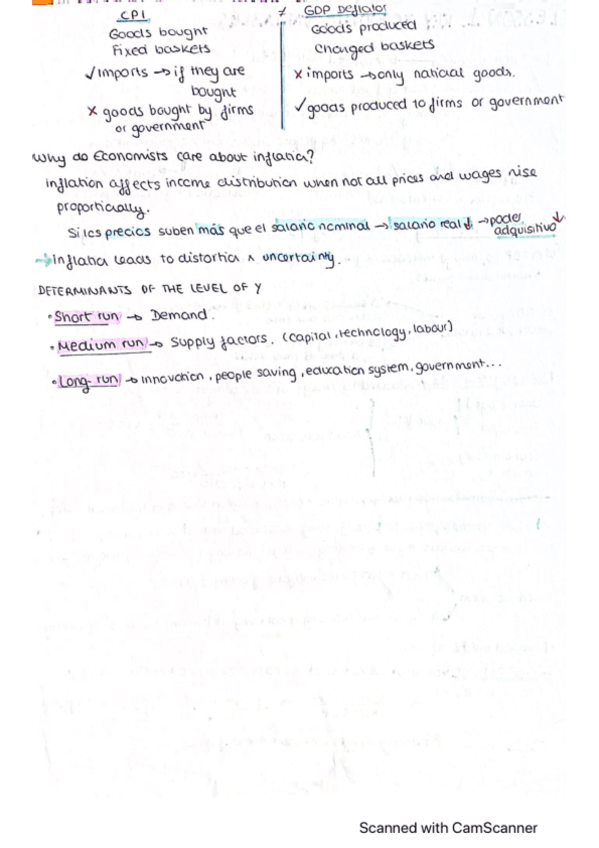 CPI ≠ GDP Deflator
Goods bought Goods produced
Fixed baskets Changed baskets
✓Imports → if they are bought
✗ imports → only national goods.
✗ goods bought by firms or government
✓goods produced to firms or government
Why do Economists care about inflation?
Inflation affects income distribution when not all prices and wages rise
proportionally.
Si los precios suben más que el salario nominal → salario real ↓ → poder adquisitivo ↓
→ Inflation leads to distortion ∧ uncertainty.
DETERMINANTS OF THE LEVEL OF Y
• Short run → Demand.
• Medium run → Supply factors. (capital, technology, labour)
• Long-run → innovation, people saving, education system, government...
Scanned with CamScanner